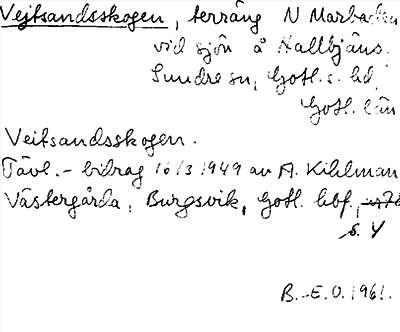 Vejtsandsskogen, terräng N Marbacken
vid sjön å Hallbjäns,
Sundre sn, Gotl. s. hd,
Gotl. län
Veitsandsskogen.
Tävl.-bidrag 16/3 1949 av A. Kihlman
Västergårda, Burgsvik, Gotl. hbf.,
s. 4
B.-E.O. 1961.